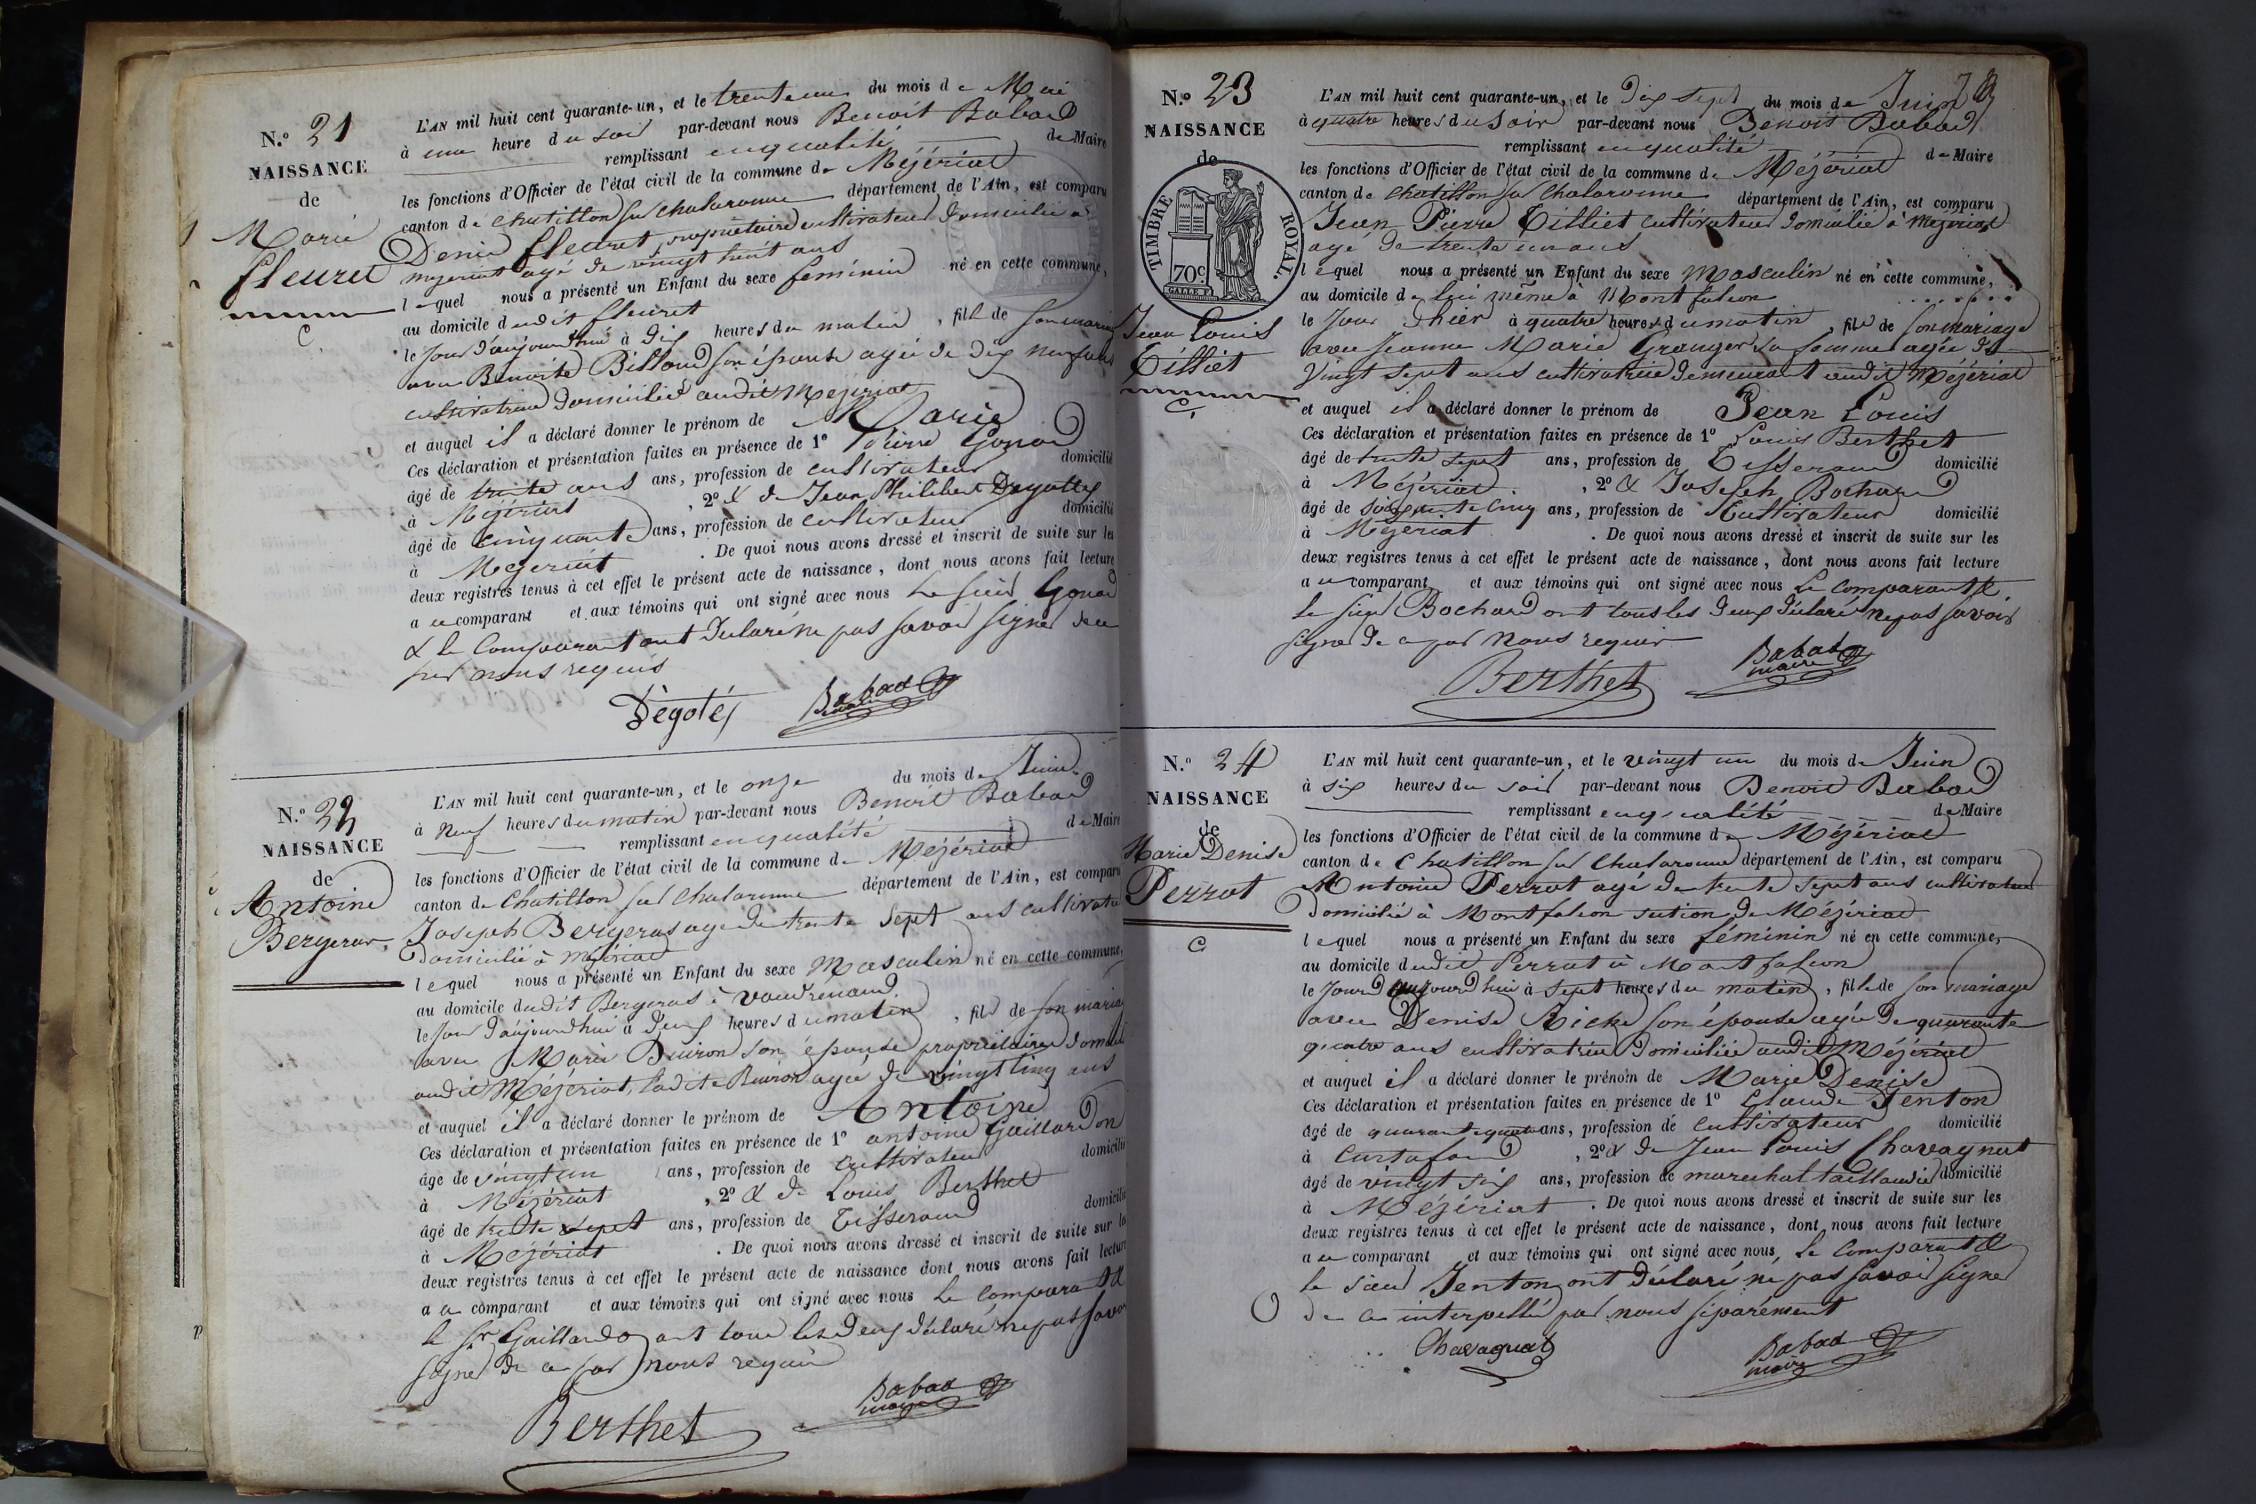 N.o 21
NAISSANCE
de
Marie
fleuret
C
L'AN mil huit cent quarante-un, et le trente un du mois de Mai
à une heure du soir par-devant nous Benoit Babad
remplissant en qualité de Maire
les fonctions d'Officier de l'état civil de la commune de Mézériat
canton de Chatillon sur Chalaronne département de l'Ain, est comparu
Denis fleuret, propriétaire cultivateur domicilié à
mezeriat agé de vingt huit ans
lequel nous a présenté un Enfant du sexe féminin né en cette commune,
au domicile dudit fleuret
le jour d'aujourd'hui à dix heures du matin, fille de son mariage
avec Benoite Billoud son épouse agée de dix neuf ans
cultivatrice domiciliée audit Mézériat
et auquel il a déclaré donner le prénom de Marie
Ces déclaration et présentation faites en présence de 1o Pierre Gonod
âgé de trente ans ans, profession de cultivateur domicilié
à Mézériat, 2o & de Jean Philibert Degottey
âgé de cinquante ans, profession de cultivateur domicilié
à Mezeriat. De quoi nous avons dressé et inscrit de suite sur les
deux registres tenus à cet effet le présent acte de naissance, dont nous avons fait lecture
au comparant et aux témoins qui ont signé avec nous Le sieur Gonod
& le Comparant ont déclaré ne pas savoir signer de ce
par nous requis
Dègotéy Babad
N.o 22
NAISSANCE
de
Antoine
Bergeras
L'AN mil huit cent quarante-un, et le onze du mois de Juin
à Neuf heures du matin par-devant nous Benoit Babad
remplissant en qualité de Maire
les fonctions d'Officier de l'état civil de la commune de Mézériat
canton de Chatillon sur Chalaronne département de l'Ain, est comparu
Joseph Bergeras agé de trente sept ans cultivateur
domicilié à mézériat
lequel nous a présenté un Enfant du sexe Masculin né en cette commune,
au domicile dudit Bergeras à Vaudrenand
le jour d'aujourd'hui à deux heures du matin, fils de son mariage
avec Marie Buiron son épouse propriétaires domiciliés
audit Mézériat, ladite Buiron agée de vingt cinq ans
et auquel il a déclaré donner le prénom de Antoine
Ces déclaration et présentation faites en présence de 1o antoine Gaillardon
âgé de vingt un ans, profession de cultivateur domicilié
à Mézériat, 2o & de Louis Berthet
âgé de trente sept ans, profession de Tisserand domicilié
à Mezériat. De quoi nous avons dressé et inscrit de suite sur les
deux registres tenus à cet effet le présent acte de naissance dont nous avons fait lecture
au comparant et aux témoins qui ont signé avec nous Le comparant &
le Sr Gaillardon ont tous les deux déclaré ne pas savoir
signer de ce par nous requis
Berthet Babad
maire
N.o 23
NAISSANCE
de
TIMBRE ROYAL.
70c
Jean Louis
Tilliet
C
L'AN mil huit cent quarante-un, et le Dix sept du mois de Juin
à quatre heures du Soir par-devant nous Benoit Babad
remplissant en qualité de Maire
les fonctions d'Officier de l'état civil de la commune de Mézériat
canton de Chatillon sur Chalaronne département de l'Ain, est comparu
Jean Pierre Tilliet cultivateur domicilié à Mezeriat
agé de trente un ans
lequel nous a présenté un Enfant du sexe Masculin né en cette commune,
au domicile de lui même à Montfalcon
le Jour d'hier à quatre heures du matin, fils de son mariage
avec Jeanne Marie Granger sa femme agée de
Vingt sept ans cultivatrice demeurant audit Mézériat
et auquel il a déclaré donner le prénom de Jean Louis
Ces déclaration et présentation faites en présence de 1o Louis Berthet
âgé de trente sept ans, profession de Tisserand domicilié
à Mézériat, 2o & Joseph Bochard
âgé de soixante cinq ans, profession de Cultivateur domicilié
à Mézeriat. De quoi nous avons dressé et inscrit de suite sur les
deux registres tenus à cet effet le présent acte de naissance, dont nous avons fait lecture
au comparant et aux témoins qui ont signé avec nous Le comparant &
le sieur Bochard ont tous les deux déclaré ne pas savoir
signer de ce par nous requis
Berthet Babad
maire
N.o 24
NAISSANCE
de
Marie Denise
Perrat
C
L'AN mil huit cent quarante-un, et le vingt un du mois de Juin
à six heures du soir par-devant nous Benoit Babad
remplissant en qualité de Maire
les fonctions d'Officier de l'état civil de la commune de Mézériat
canton de Chatillon sur Chalaronne département de l'Ain, est comparu
Antoine Perrat agé de trente sept ans cultivateur
domicilié à Montfalcon section de Mézériat
lequel nous a présenté un Enfant du sexe féminin né en cette commune,
au domicile dudit Perrat à Montfalcon
le Jour d'aujourd'hui à sept heures du matin, fille de son mariage
avec Denise son épouse agée de quarante
quatre ans cultivatrice domiciliée audit Mézériat
et auquel il a déclaré donner le prénom de Marie Denise
Ces déclaration et présentation faites en présence de 1o Claude Tenton
âgé de quarante quatre ans, profession de cultivateur domicilié
à Curtafond, 2o & de Jean Louis Chavagnat
âgé de vingt six ans, profession de marechal taillandier domicilié
à Mézériat. De quoi nous avons dressé et inscrit de suite sur les
deux registres tenus à cet effet le présent acte de naissance, dont nous avons fait lecture
au comparant et aux témoins qui ont signé avec nous, Le Comparant &
le sieur Tenton ont déclaré ne pas savoir signer
de ce interpellé par nous séparément
Chavagnat Babad
maire